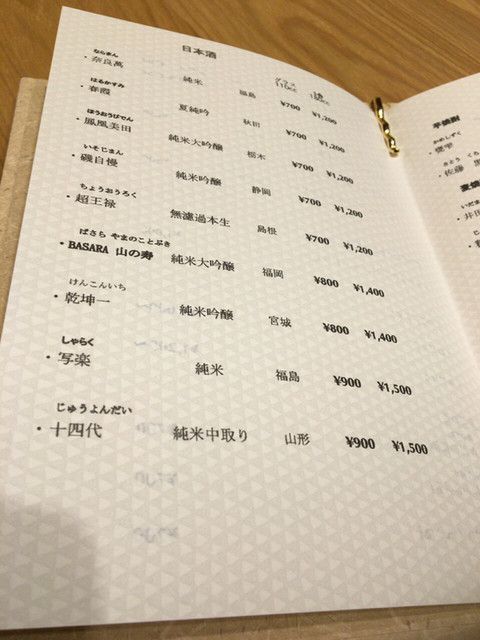 日本酒
グラス 徳
ならまん
・奈良萬 純米 福島 ¥700 ¥1,200
はるかすみ
・春霞 夏純吟 秋田 ¥700 ¥1,200
ほうおうびでん
・鳳凰美田 純米大吟醸 栃木 ¥700 ¥1,200
いそじまん
・磯自慢 純米吟醸 静岡 ¥700 ¥1,200
ちょうおうろく
・超王禄 無濾過本生 島根 ¥700 ¥1,200
ばさら やまのことぶき
・BASARA 山の寿 純米大吟醸 福岡 ¥800 ¥1,400
けんこんいち
・乾坤一 純米吟醸 宮城 ¥800 ¥1,400
しゃらく
・写楽 純米 福島 ¥900 ¥1,500
じゅうよんだい
・十四代 純米中取り 山形 ¥900 ¥1,500
芋焼酎
かめしずく
・甕雫
さとう くろ
・佐藤